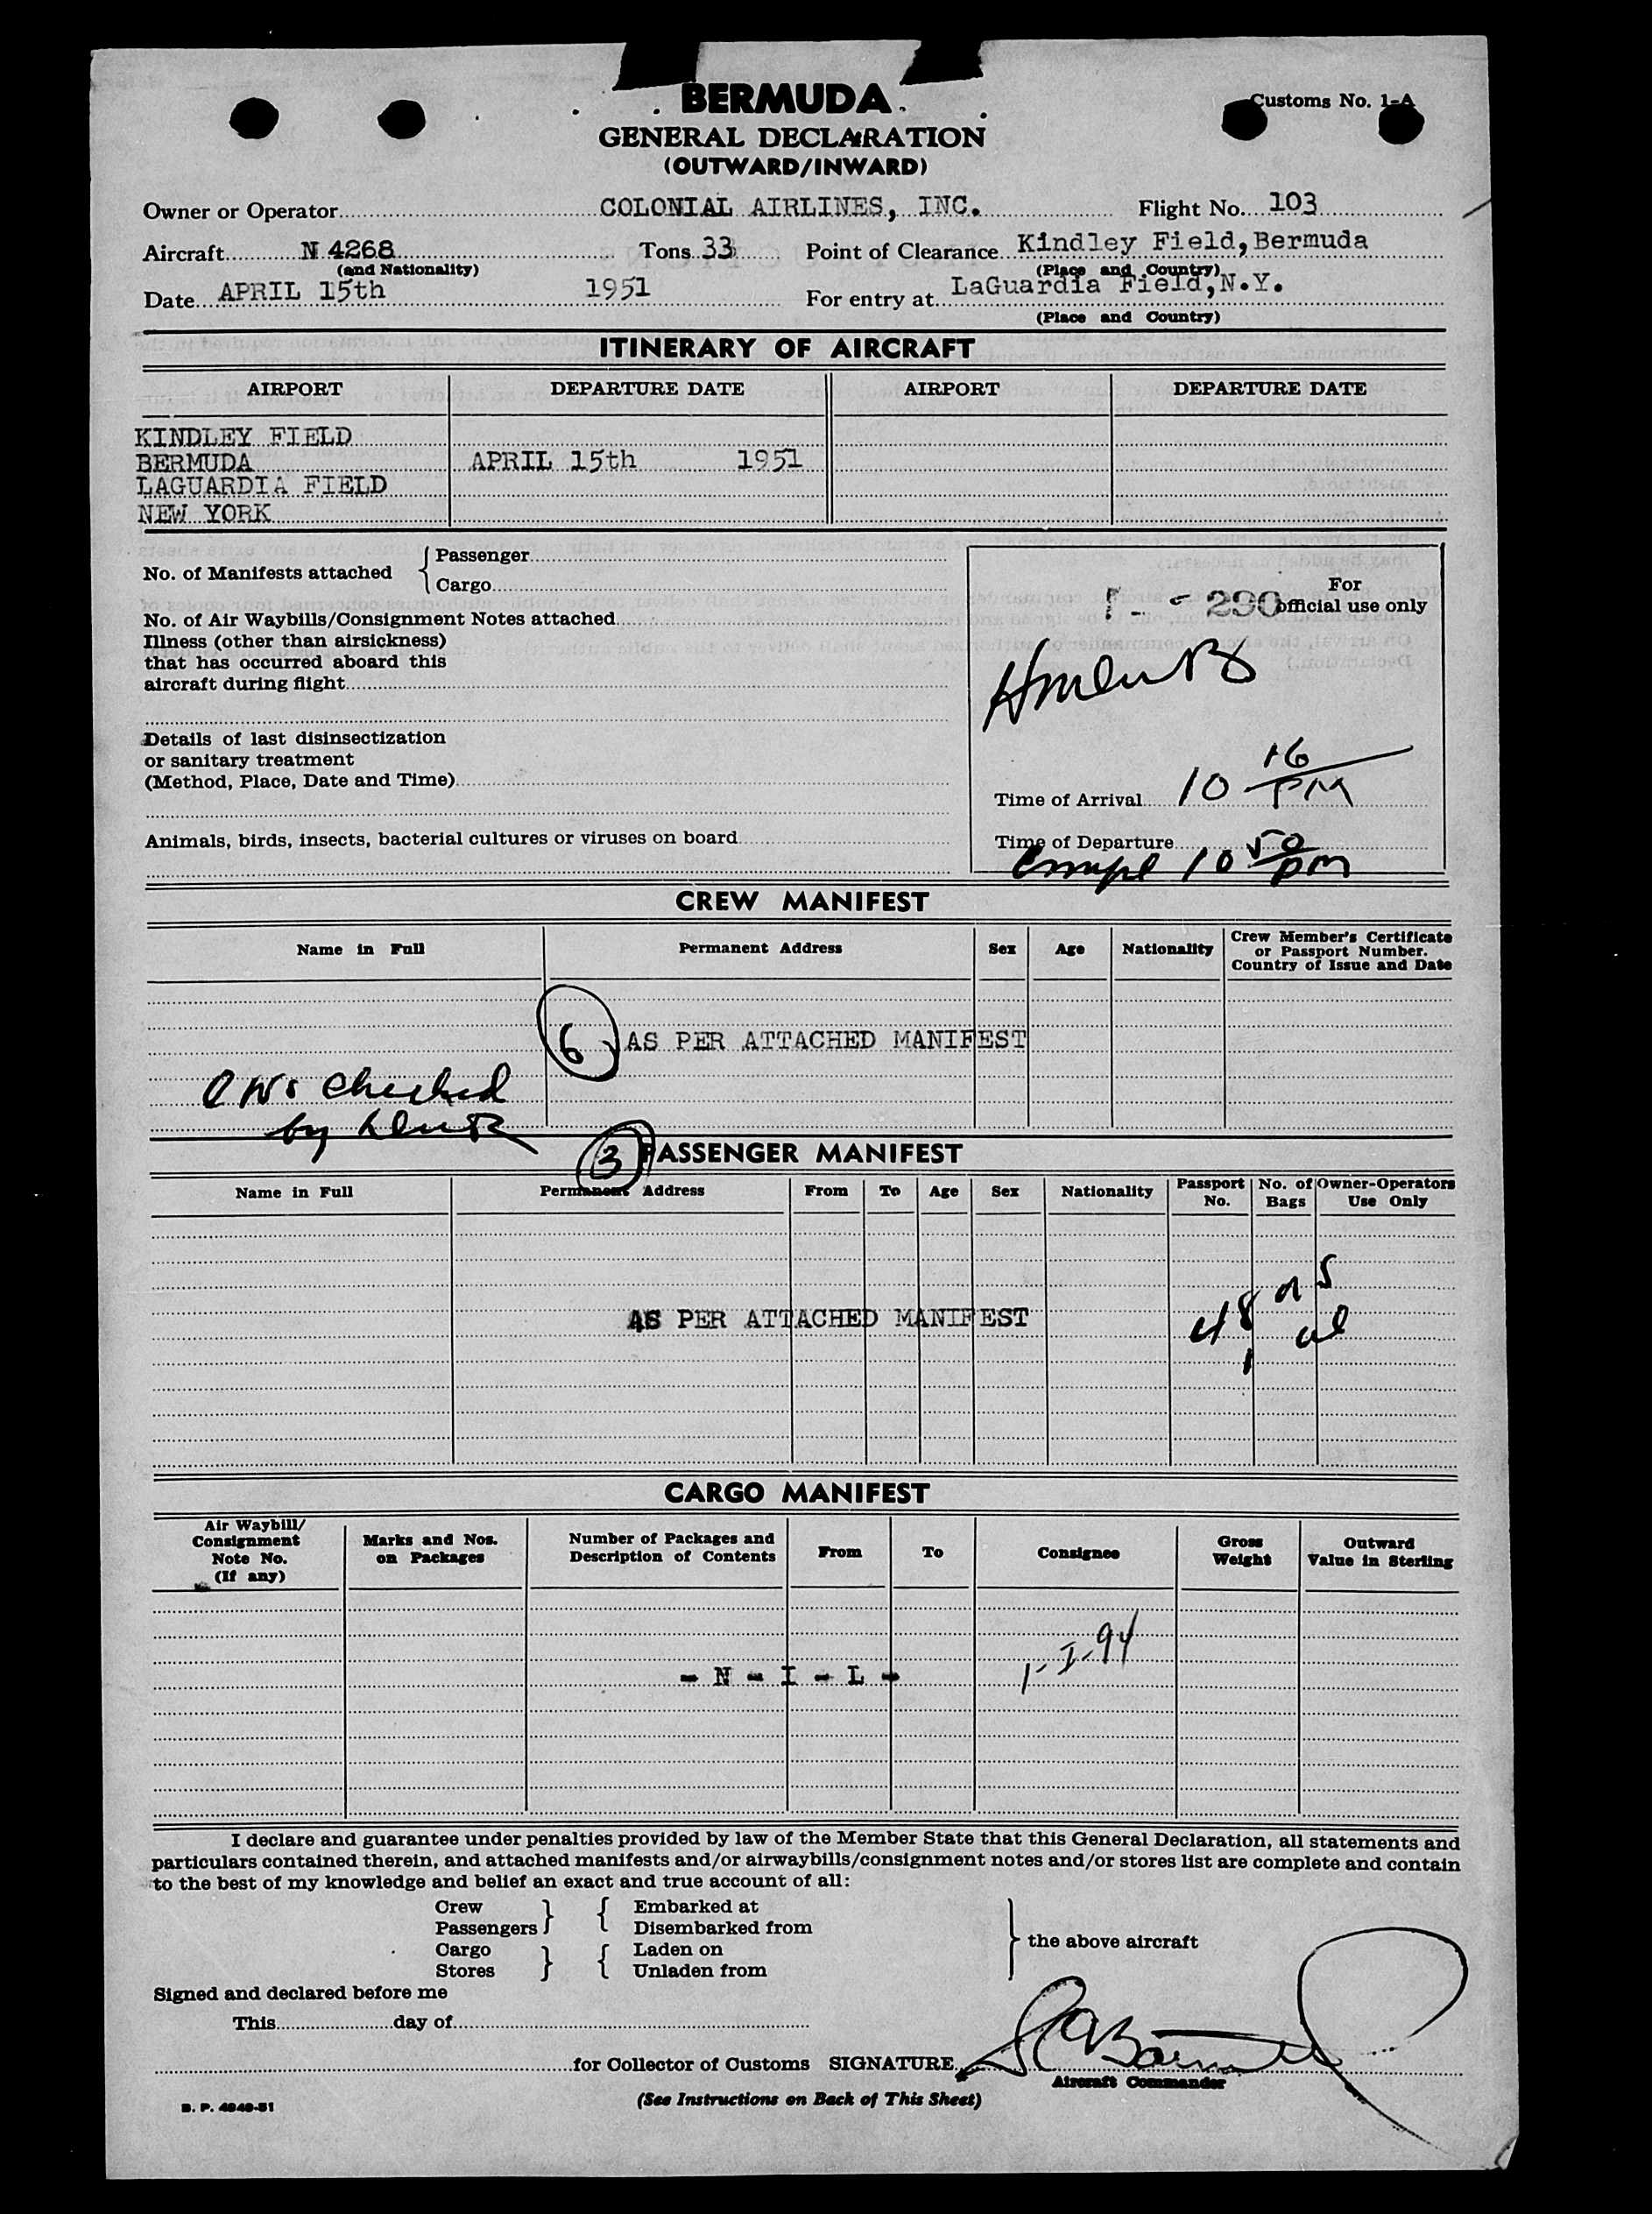 BERMUDA
Customs No. 1-A
GENERAL DECLARATION
(OUTWARD/INWARD)
Owner or Operator COLONIAL AIRLINES, INC. Flight No. 103
Aircraft N 4268 Tons 33 Point of Clearance Kindley Field, Bermuda
(and Nationality) (Place and Country)
Date APRIL 15th 1951 For entry at LaGuardia Field, N.Y.
(Place and Country)
ITINERARY OF AIRCRAFT
AIRPORT DEPARTURE DATE AIRPORT DEPARTURE DATE
KINDLEY FIELD
BERMUDA APRIL 15th 1951
LAGUARDIA FIELD
NEW YORK
No. of Manifests attached { Passenger
Cargo
No. of Air Waybills/Consignment Notes attached
Illness (other than airsickness)
that has occurred aboard this
aircraft during flight
Details of last disinsectization
or sanitary treatment
(Method, Place, Date and Time)
Animals, birds, insects, bacterial cultures or viruses on board
For
290 official use only
Time of Arrival 10 16 PM
Time of Departure
Compl 10 50 pm
CREW MANIFEST
Name in Full Permanent Address Sex Age Nationality Crew Member's Certificate or Passport Number. Country of Issue and Date
6 AS PER ATTACHED MANIFEST
checked
by
3 PASSENGER MANIFEST
Name in Full Permanent Address From To Age Sex Nationality Passport No. No. of Bags Owner-Operators Use Only
AS PER ATTACHED MANIFEST 48
1
CARGO MANIFEST
Air Waybill/ Consignment Note No. (If any) Marks and Nos. on Packages Number of Packages and Description of Contents From To Consignee Gross Weight Outward Value in Sterling
- N - I - L - 1-I-94
I declare and guarantee under penalties provided by law of the Member State that this General Declaration, all statements and
particulars contained therein, and attached manifests and/or airwaybills/consignment notes and/or stores list are complete and contain
to the best of my knowledge and belief an exact and true account of all:
Crew } { Embarked at
Passengers Disembarked from
Cargo } { Laden on
Stores Unladen from
} the above aircraft
Signed and declared before me
This day of
for Collector of Customs SIGNATURE
Aircraft Commander
(See Instructions on Back of This Sheet)
B. P. 4949-51